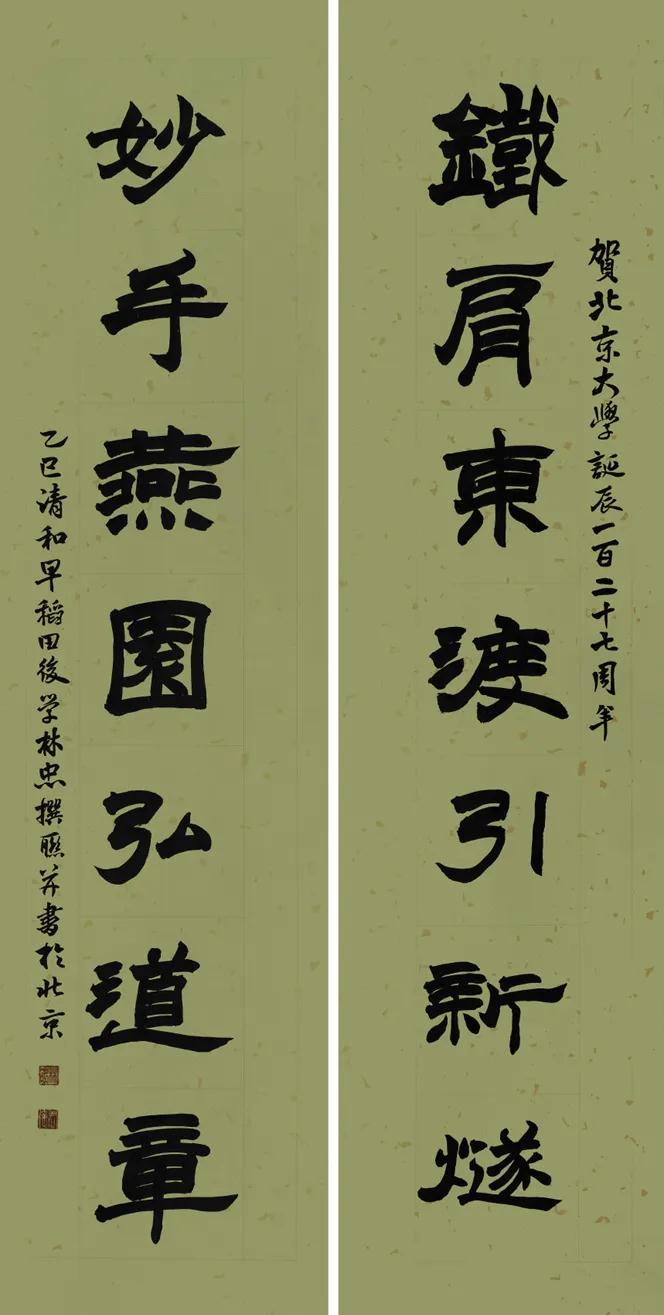 賀北京大學誕辰一百二十七周年
鐵肩東渡引新燧
妙手燕園弘道章
乙巳清和早稻田後学林忠撰聯並書於北京